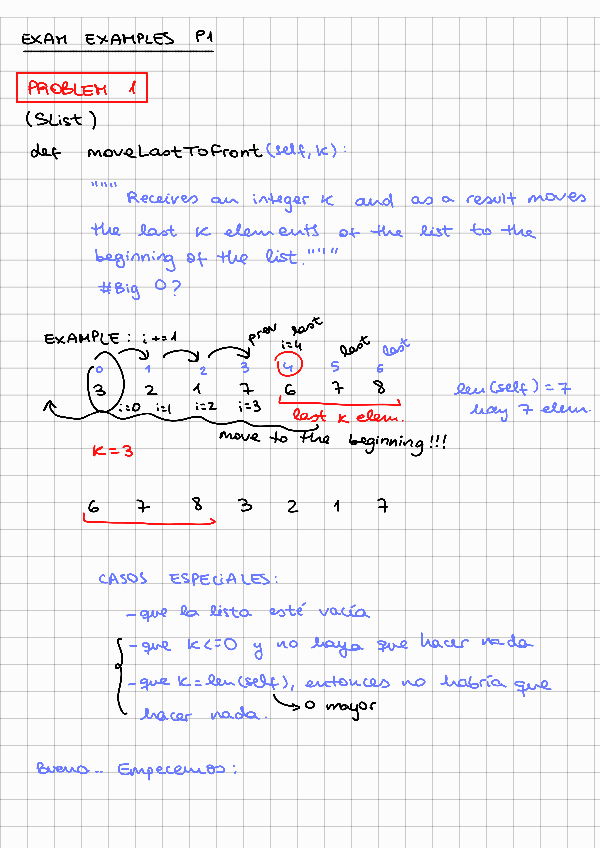 EXAM EXAMPLES P1
PROBLEM 1
(SList)
def moveLastToFront(self, k):
""" Receives an integer k and as a result moves
the last k elements of the list to the
beginning of the list."""
#Big O?
EXAMPLE: i+=1
prev last
i=4 last last
0 1 2 3 4 5 6
3 2 1 7 6 7 8 len(self) = 7
i=0 i=1 i=2 i=3 last k elem. hay 7 elem.
move to the beginning!!!
k=3
6 7 8 3 2 1 7
CASOS ESPECIALES:
- que la lista esté vacía
- que k<=0 y no haya que hacer nada
- que k=len(self), entonces no habría que
hacer nada. o mayor
Bueno.. Empecemos: